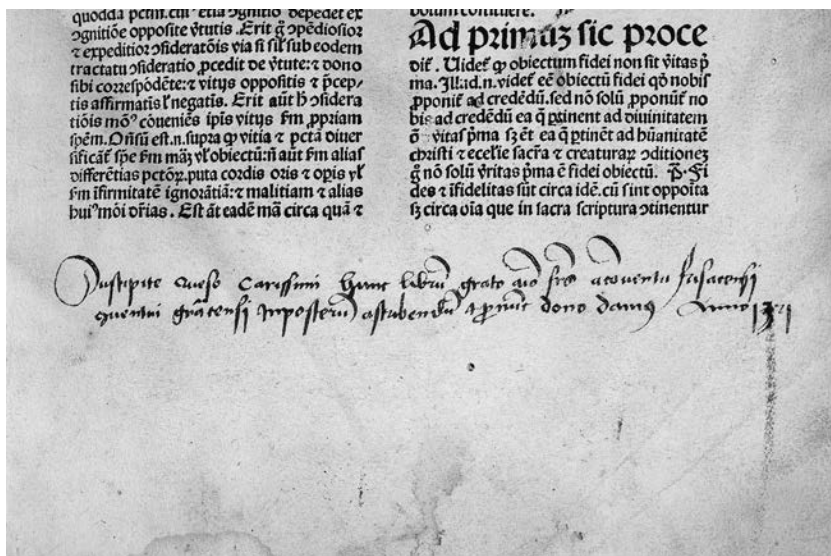 quoddã pctm̃.cui⁹ etiã ↄgnitio depẽdet ex
ↄgnitiõe opposite v̾tutis . Erit g̊ ↄpẽdiosior
⁊ expeditior ↄsideratõis via si sil̃ sub eodem
tractatu ↄsideratio ꝓcedit de v̾tute: ⁊ dono
sibi correspõdẽte: ⁊ vitijs oppositis ⁊ p̃cep/
tis affirmatis l̃ negatis. Erit aũt h̊ ↄsidera
tiõis mo⁹ cõueniẽs ipis vitijs ẜm ꝓpriam
spẽm. Oñsũ est.n.supra ꝙ vitia ⁊ pctã diuer
sificãt̃ spẽ ẜm mãʒ vl̃ obiectũ:ñ aũt ẜm alias
differẽtias pctõꝝ.puta cordis oris ⁊ opis vl̃
ẜm ĩfirmitatẽ ignorãtiã: ⁊ malitiam ⁊ alias
hui⁹mõi dr̃ias . Est ãt eadẽ mã circa quã ⁊
Ad primuʒ sic proce
dit̃ . Uidet̃ ꝙ obiectum fidei non sit v̾itas p̃
ma. Ill̃.id.n.videt̃ eẽ obiectũ fidei qđ nobis
ꝓponit̃ ad credẽdũ.sed nõ solũ ꝓponũt̃ no
bis ad credẽdũ ea q̃ ꝑtinent ad diuinitatem
õ v̾itas p̃ma sʒ ẽt ea q̃ ꝑtinẽt ad hũanitatẽ
christi ⁊ ecclie sacr̃a ⁊ creaturaꝝ ↄditioneʒ
g̊ nõ solũ v̾itas p̃ma ẽ fidei obiectũ. P̃. Fi
des ⁊ ĩfidelitas sũt circa idẽ.cũ sint oppoĩta
sʒ circa oĩa que in sacra scriptura ↄtinentur
Suscipite queso carissimi hunc librũ grato aĩo fr̃es
dono damus Anno